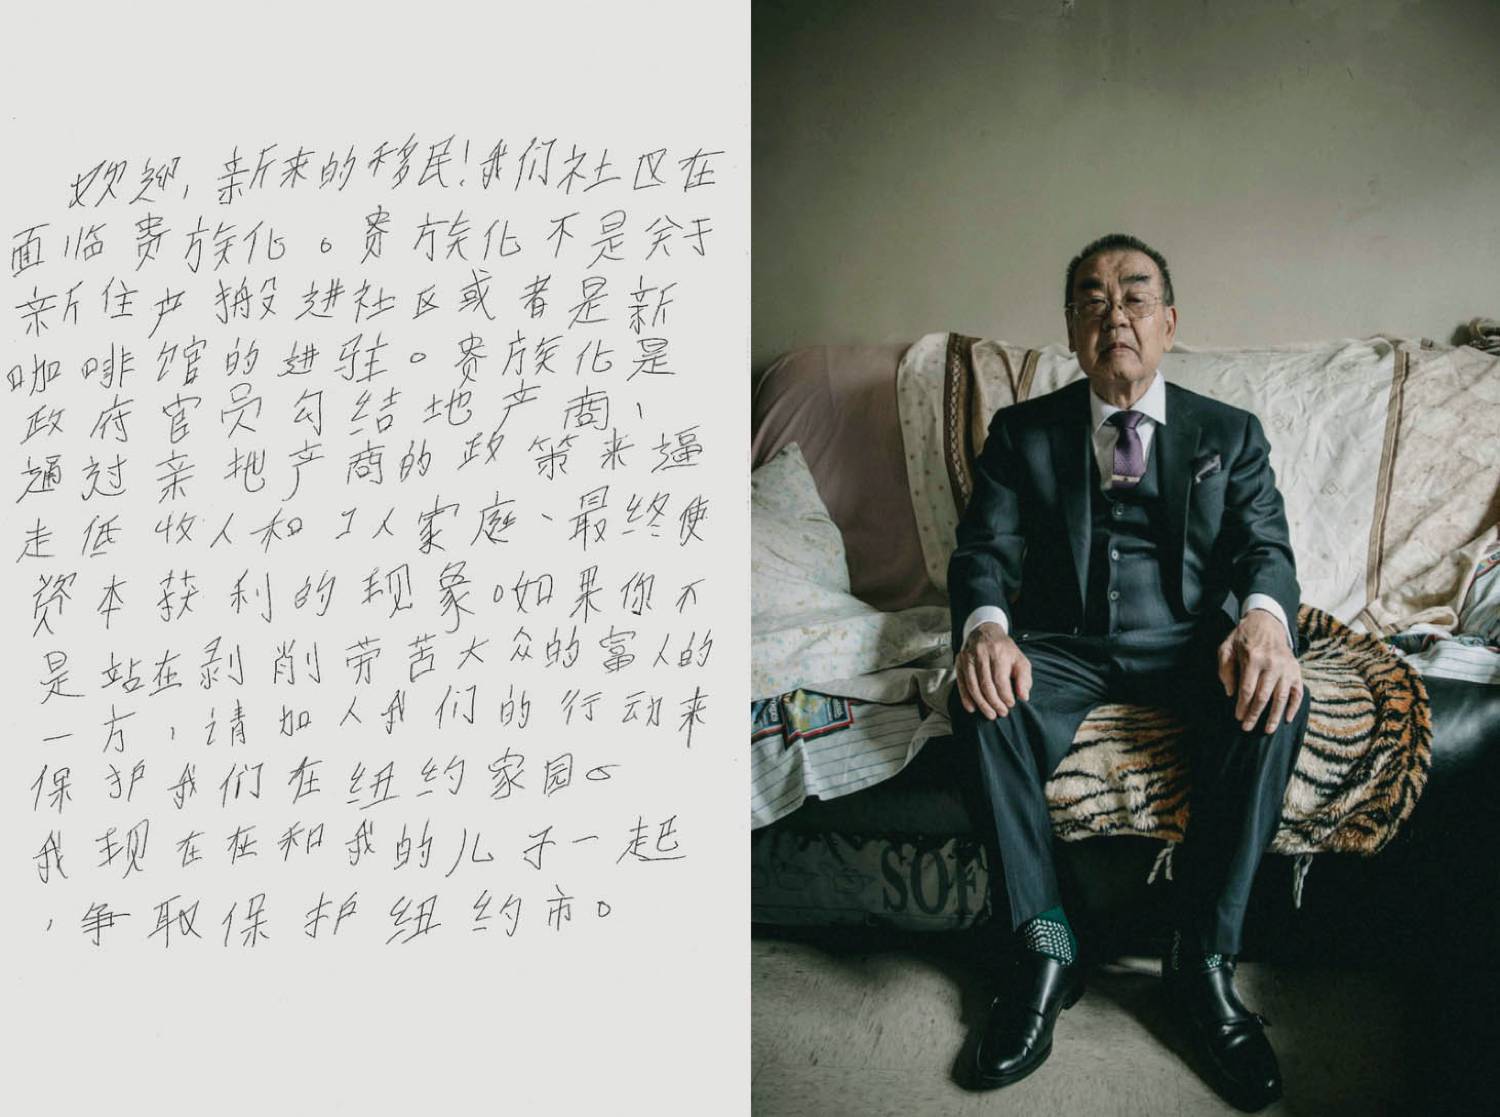 欢迎，新来的移民！我们社区在
面临贵族化。贵族化不是关于
新住户搬进社区或者是新
咖啡馆的进驻。贵族化是
政府官员勾结地产商，
通过亲地产商的政策来逼
走低收人和工人家庭、最终使
资本获利的现象。如果你不
是站在剥削劳苦大众的富人的
一方，请加人我们的行动来
保护我们在纽约家园。
我现在在和我的儿子一起
，争取保护纽约市。
SOF